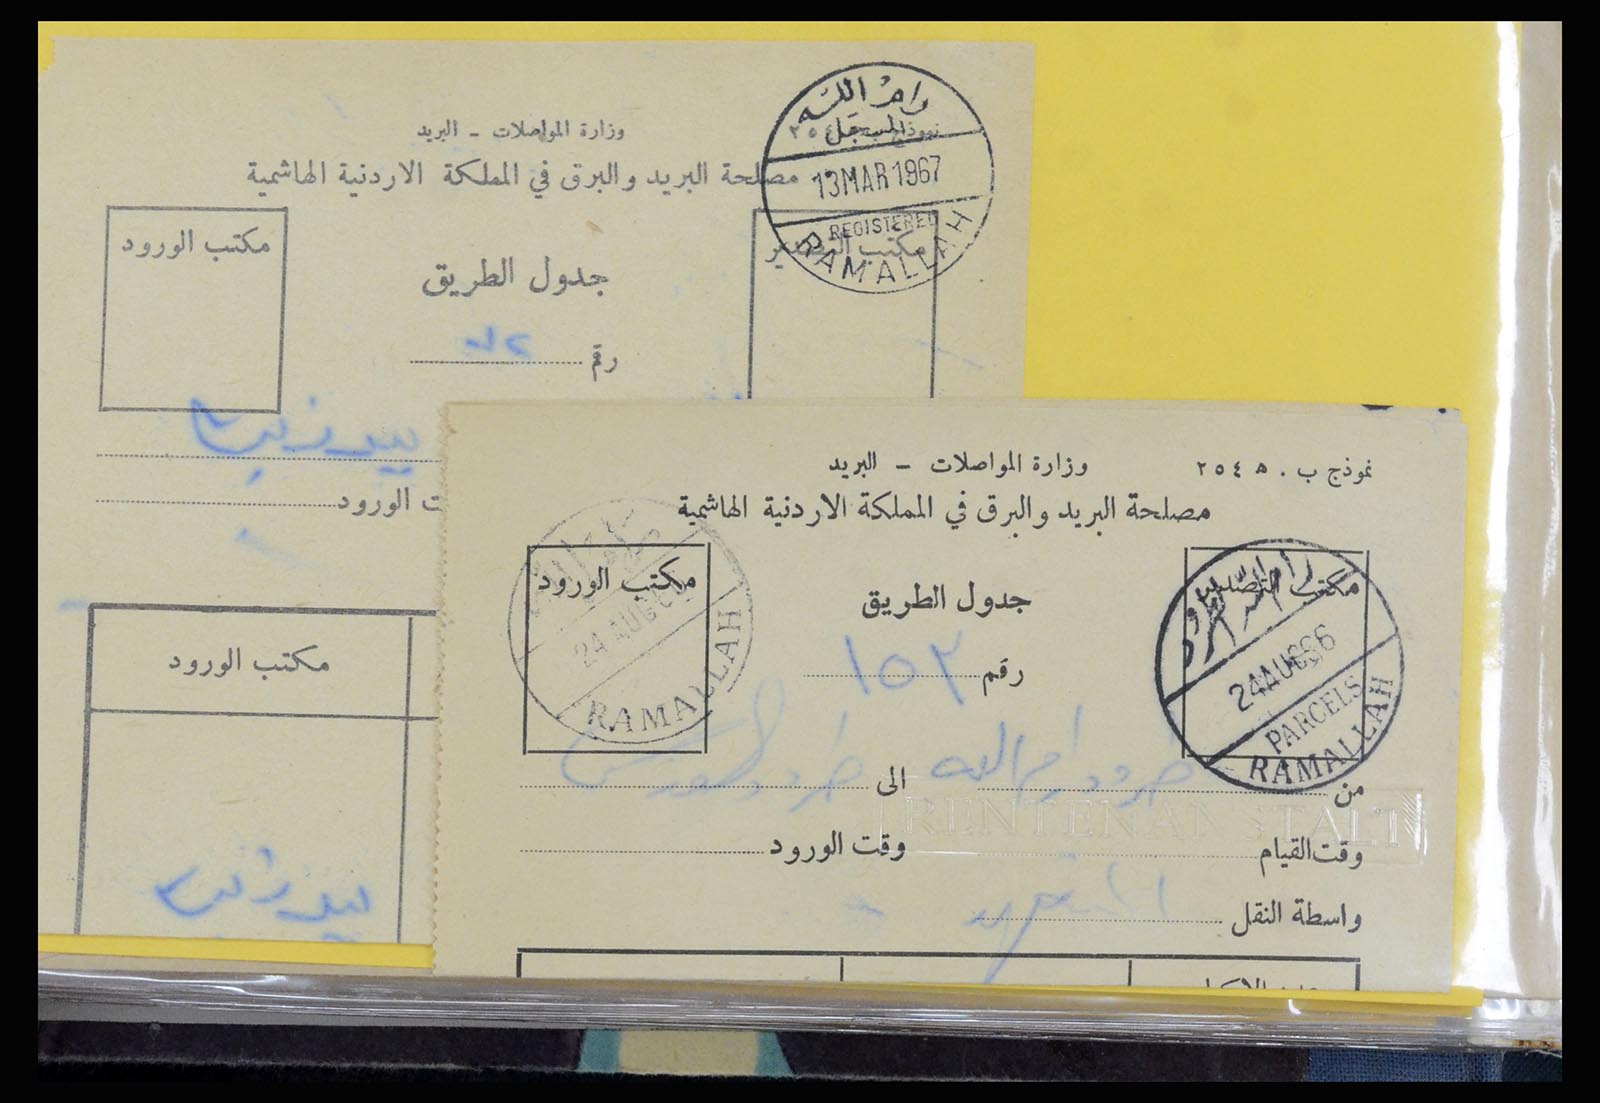 وزارة المواصلات - البريد
مصلحة البريد والبرق في المملكة الاردنية الهاشمية
رام الله
المسجل
13 MAR 1967
REGISTERED
RAMALLAH
مكتب التصدير
مكتب الورود
جدول الطريق
رقم
ت الورود
مكتب الورود
نموذج ب . ٢٥٤ ه
وزارة المواصلات - البريد
مصلحة البريد والبرق في المملكة الاردنية الهاشمية
مكتب التصدير
24 AUG 66
PARCELS
RAMALLAH
مكتب الورود
24 AUG
RAMALLAH
جدول الطريق
رقم ١٥٣
من طرود رام الله الى طرود القدس
RENTENANSTALT
وقت القيام وقت الورود
واسطة النقل